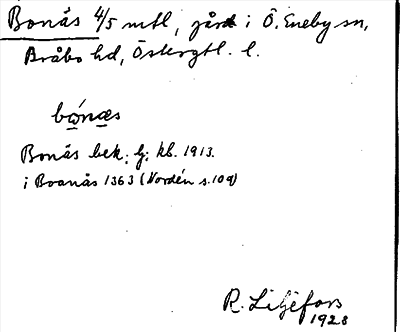 Bonäs 4/5 mtl, gård i Ö. Eneby sn,
Bråbo hd, Östergtl. l.
bó̠næ̠s
Bonäs bek. lj. kb. 1913.
i Boanäs 1363 (Nordén s. 109)
R. Liljefors
1928